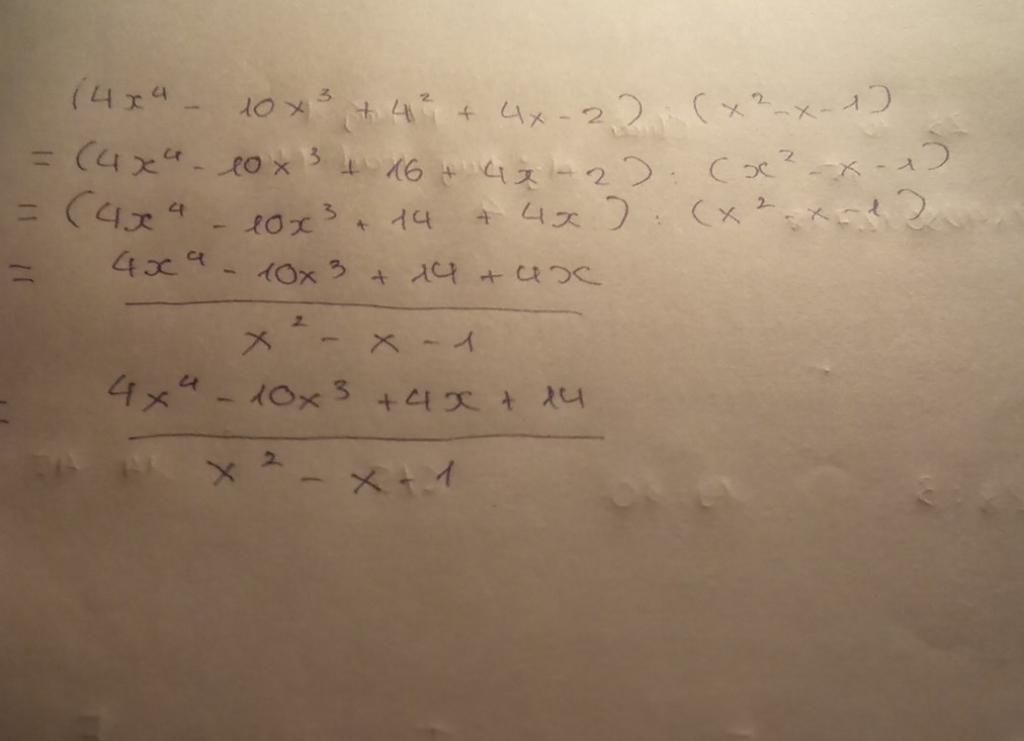 (4x⁴ - 10x³ + 4² + 4x - 2) : (x² - x - 1)
= (4x⁴ - 10x³ + 16 + 4x - 2) : (x² - x - 1)
= (4x⁴ - 10x³ + 14 + 4x) : (x² - x - 1)
= 4x⁴ - 10x³ + 14 + 4x
x² - x - 1
= 4x⁴ - 10x³ + 4x + 14
x² - x - 1